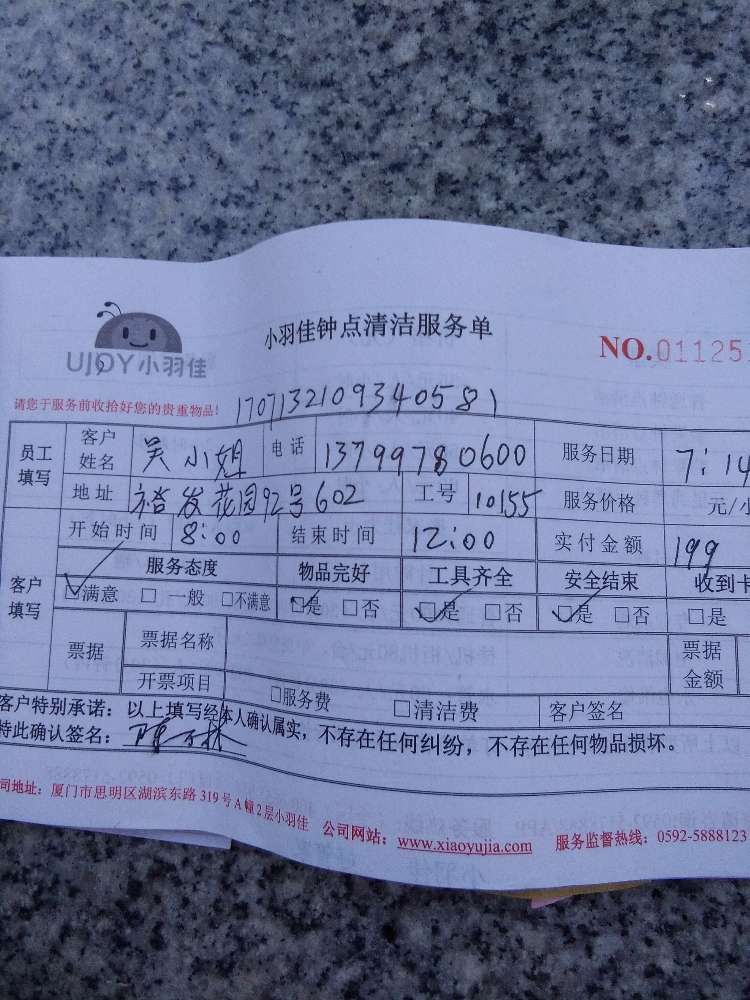 小羽佳钟点清洁服务单
NO.01125
UJOY小羽佳
请您于服务前收拾好您的贵重物品!
1707132109340581
员工填写 客户姓名 吴小姐 电话 13799780600 服务日期 7:14
地址 裕发花园92号602 工号 10155 服务价格 元/小
开始时间 8:00 结束时间 12:00 实付金额 199
客户填写 服务态度 物品完好 工具齐全 安全结束 收到卡
☑满意 □ 一般 □不满意 ☑是 □否 ☑是 □否 ☑是 □否 □是
票据 票据名称 票据金额
开票项目 □服务费 □清洁费 客户签名
客户特别承诺：以上填写经本人确认属实，不存在任何纠纷，不存在任何物品损坏。
特此确认签名：
司地址：厦门市思明区湖滨东路319号A幢2层小羽佳 公司网站：www.xiaoyujia.com 服务监督热线：0592-5888123